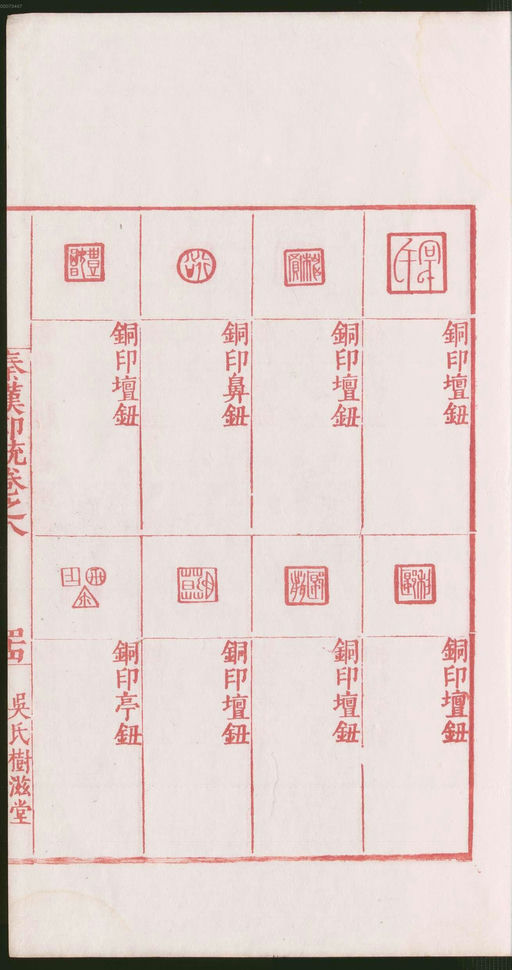 00073447
銅印壇鈕
銅印壇鈕
銅印鼻鈕
銅印壇鈕
銅印壇鈕
銅印壇鈕
銅印壇鈕
銅印亭鈕
秦漢印統卷之八
吳氏樹滋堂